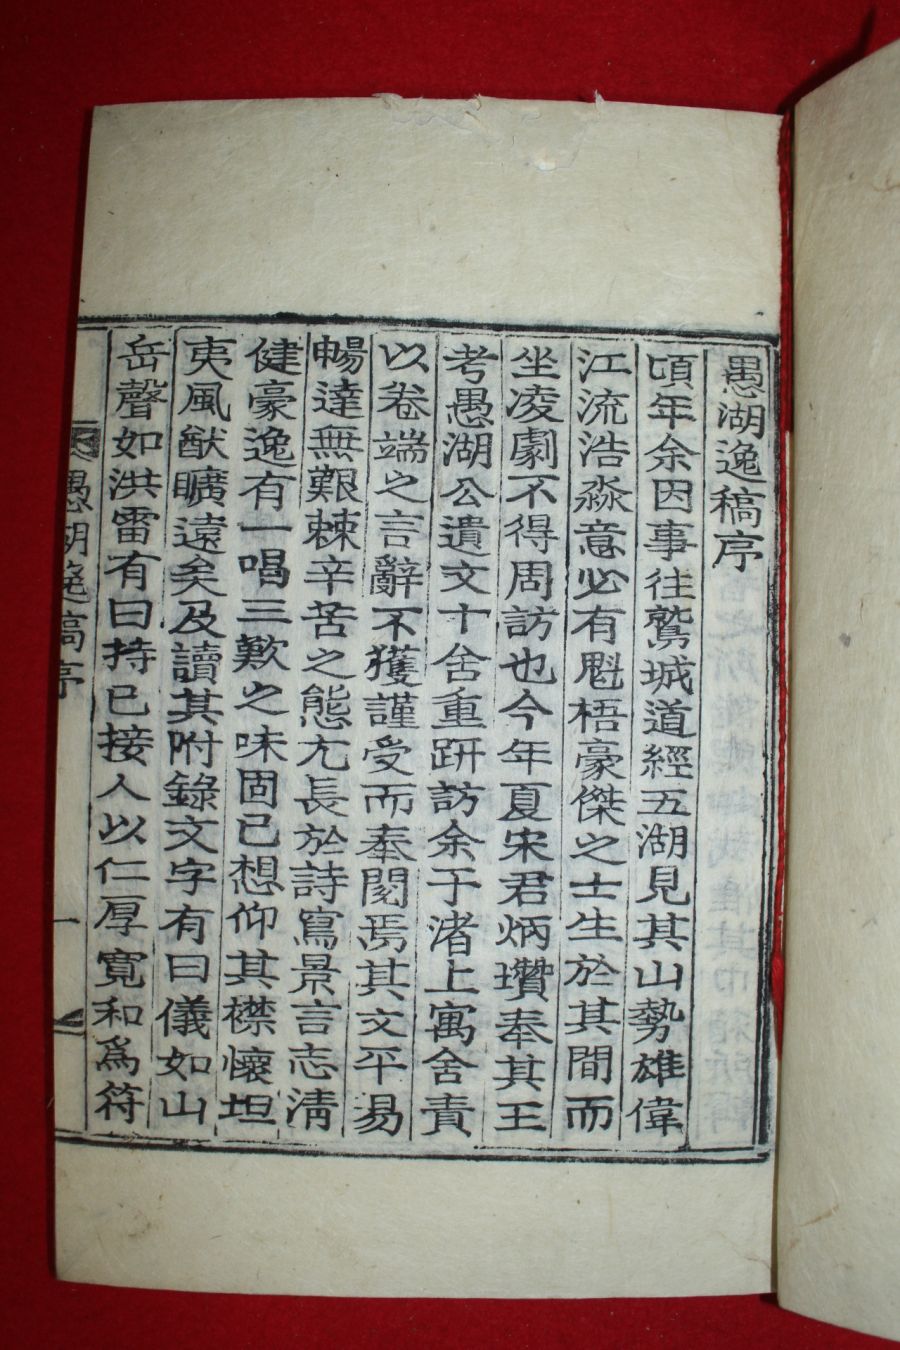 愚湖逸稿序
頃年余因事往鷲城道經五湖見其山勢雄偉
江流浩淼意必有魁梧豪傑之士生於其間而
坐凌劇不得周訪也今年夏宋君炳瓚奉其王
考愚湖公遺文十舍重趼訪余于渚上寓舍責
以卷端之言辭不獲謹受而奉閱焉其文平易
暢達無艱棘辛苦之態尤長於詩寫景言志淸
健豪逸有一唱三歎之味固已想仰其襟懷坦
夷風猷曠遠矣及讀其附錄文字有曰儀如山
岳聲如洪雷有曰持己接人以仁厚寬和爲符
愚湖逸稿序
一